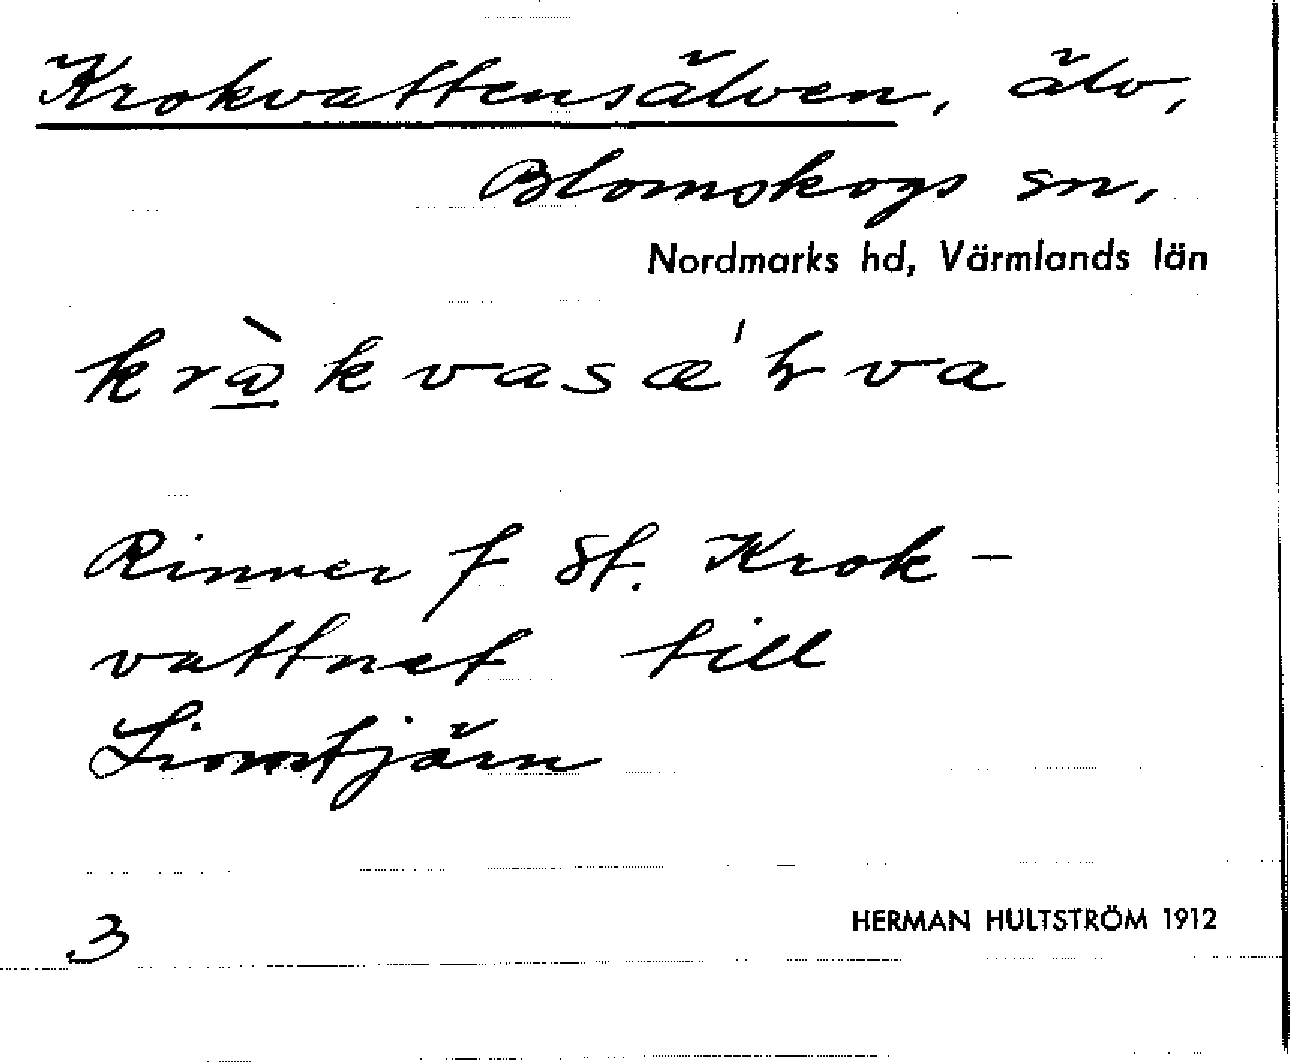 Krokvattensälven, älv,
Blomskogs sn,
Nordmarks hd, Värmlands län
Rinner f St. Krok-
vattnet till
3
HERMAN HULTSTRÖM 1912